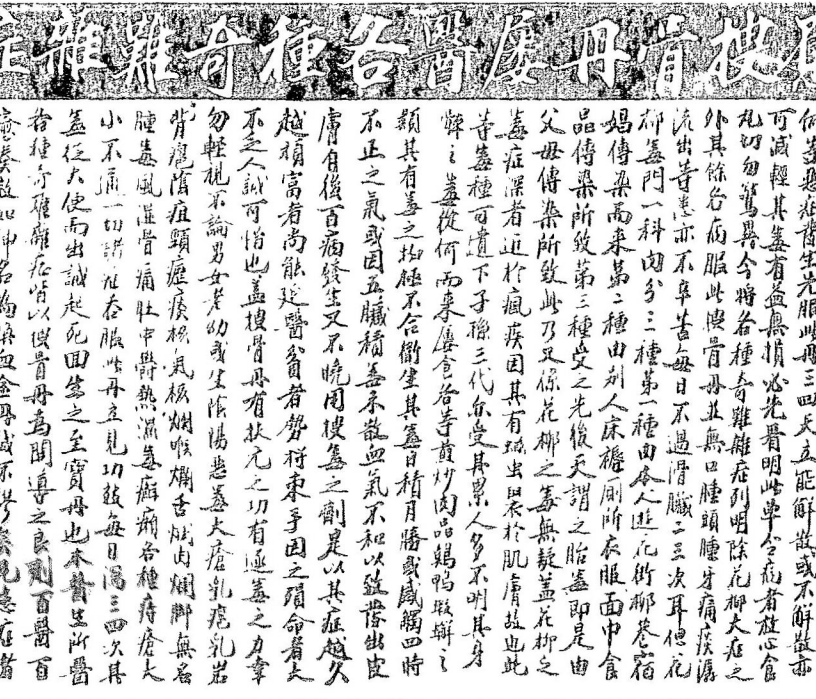 搜骨丹屢醫各種奇難雜症
何等惡症醫生先服此丹三四天立能解散或不解散亦
可減輕其毒有益無損必先醫明此單令病者放心食
丸切勿驚異今將各種奇難雜症列明除花柳大症之
外其餘各病服此搜骨丹並無口腫頭腫牙痛痰瀑
流出等患亦不辛苦每日不過滑臟二三次耳但花
柳毒門一科內分三種第一種由本人遊花街柳巷宿
娼傳染而來第二種由別人床褥廁所衣服面巾食
品傳染所致第三種受之先後天謂之胎毒即是由
父母傳染所致此乃足係花柳之毒無疑蓋花柳之
毒症深者近於瘋疾因其有瑀虫長於肌膚故也此
等毒種可遺下子孫三代亦受其累人多不明其身
之毒從何而來屢食各等煎炒肉品鵝鴨蝦蠏之
類其有毒之物極不合衞生其毒日積月勝或感觸四時
不正之氣或因五臟積毒不散血氣不和以致發出皮
膚自後百病發生又不曉用搜毒之劑是以其症越久
越頑富者尚能延醫貧者勢將束手因之殞命者大
不乏人誠可惜也蓋搜骨丹有扶元之功有逐毒之力幸
勿輕視不論男女老幼或生陰陽惡毒大瘡乳疽乳岩
背癰陰疽頸癧痰核氣核爛喉爛舌爛肉爛脚無名
腫毒風濕骨痛肚中鬱熱濕毒癬癩各種痔瘡大
小不通一切諸症吞服此丹立見功效每日瀉三四次其
毒從大便而出誠起死回生之至寶丹也本醫生所醫
各種奇難雜症皆以搜骨丹為開導之良劑百醫百